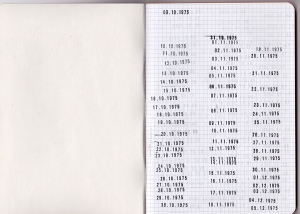 09.10.1975
10.10.1975
11.10.1975
13.10.1975
13.10.1975
15.10.1975
14.10.1975
15.10.1975
16.10.1975
17.10.1975
18.10.1975
19.10.1975
20.10.1975
21.10.1975
22.10.1975
23.10.1975
24.10.1975
25.10.1975
26.10.1975
27.10.1975
28.10.1975
29.10.1975
30.10.1975
31.10.1975
01.11.1975
02.11.1975
03.11.1975
04.11.1975
05.11.1975
06.11.1975
07.11.1975
08.11.1975
09.11.1975
10.11.1975
11.11.1975
12.11.1975
15.11.1975
16.11.1975
17.11.1975
18.11.1975
20.11.1975
21.11.1975
23.11.1975
24.11.1975
25.11.1975
26.11.1975
27.11.1975
28.11.1975
29.11.1975
30.11.1975
01.12.1975
02.12.1975
03.12.1975
04.12.1975
05.12.1975